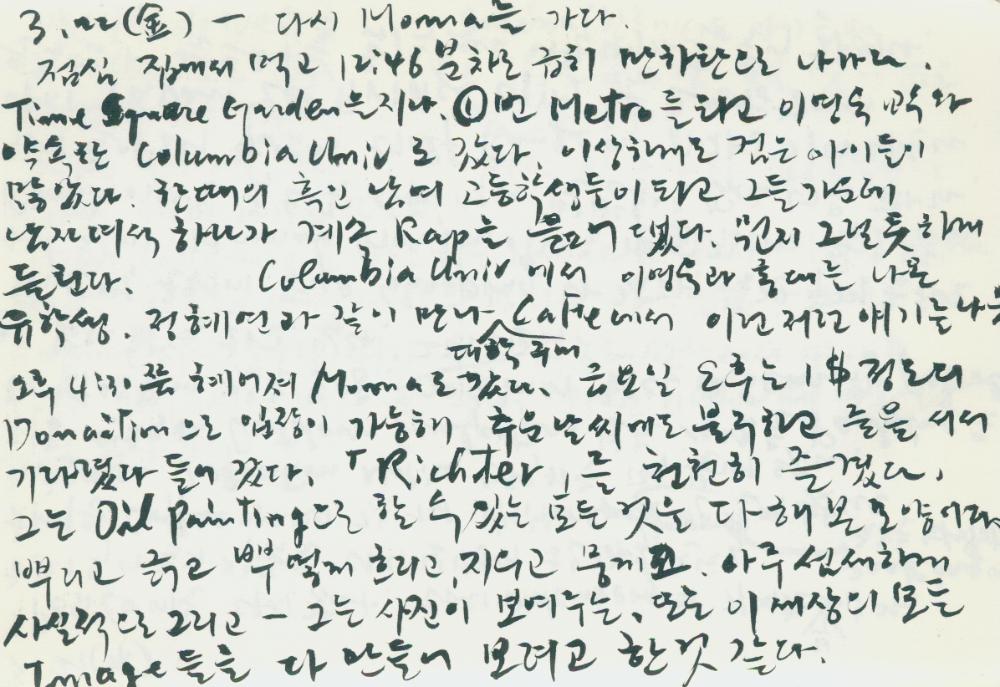 3, 22 (金) - 다시 Moma를 가다.
점심 집에서 먹고 12:46 분차로 급히 만하탄으로 나가다.
Time Square Garden을 지나, ①번 Metro를 타고 이명숙 교수와
약속한 Columbia Univ로 갔다. 이상하게도 검은 아이들이
많았다. 한떼의 흑인 남여 고등학생들이 타고 그들 가운데
남자녀석 하나가 계속 Rap을 불러 댔다. 뭔지 그럴듯하게
들린다. Columbia Univ에서 이명숙과 홍대를 나온
유학생 정혜연과 같이 만나 대학구내 Caffe에서 이런저런 얘기를 나눈
오후 4:30쯤 헤어져 Moma로 갔다. 금요일 오후는 1$ 정도의
Donation으로 입장이 가능해 추운날씨에도 불구하고 줄을 서서
기다렸다 들어갔다. "Richter"를 천천히 즐겼다.
그는 Oil painting으로 할 수 있는 모든 것을 다 해 본 모양이다.
뿌리고 긁고 흐리고, 지우고 뭉게고. 아주 섬세하게
사실적으로 그리고 - 그는 사진이 보여주는, 모든 이 세상의 모든
Image들을 다 만들어 보려고 한것 같다.